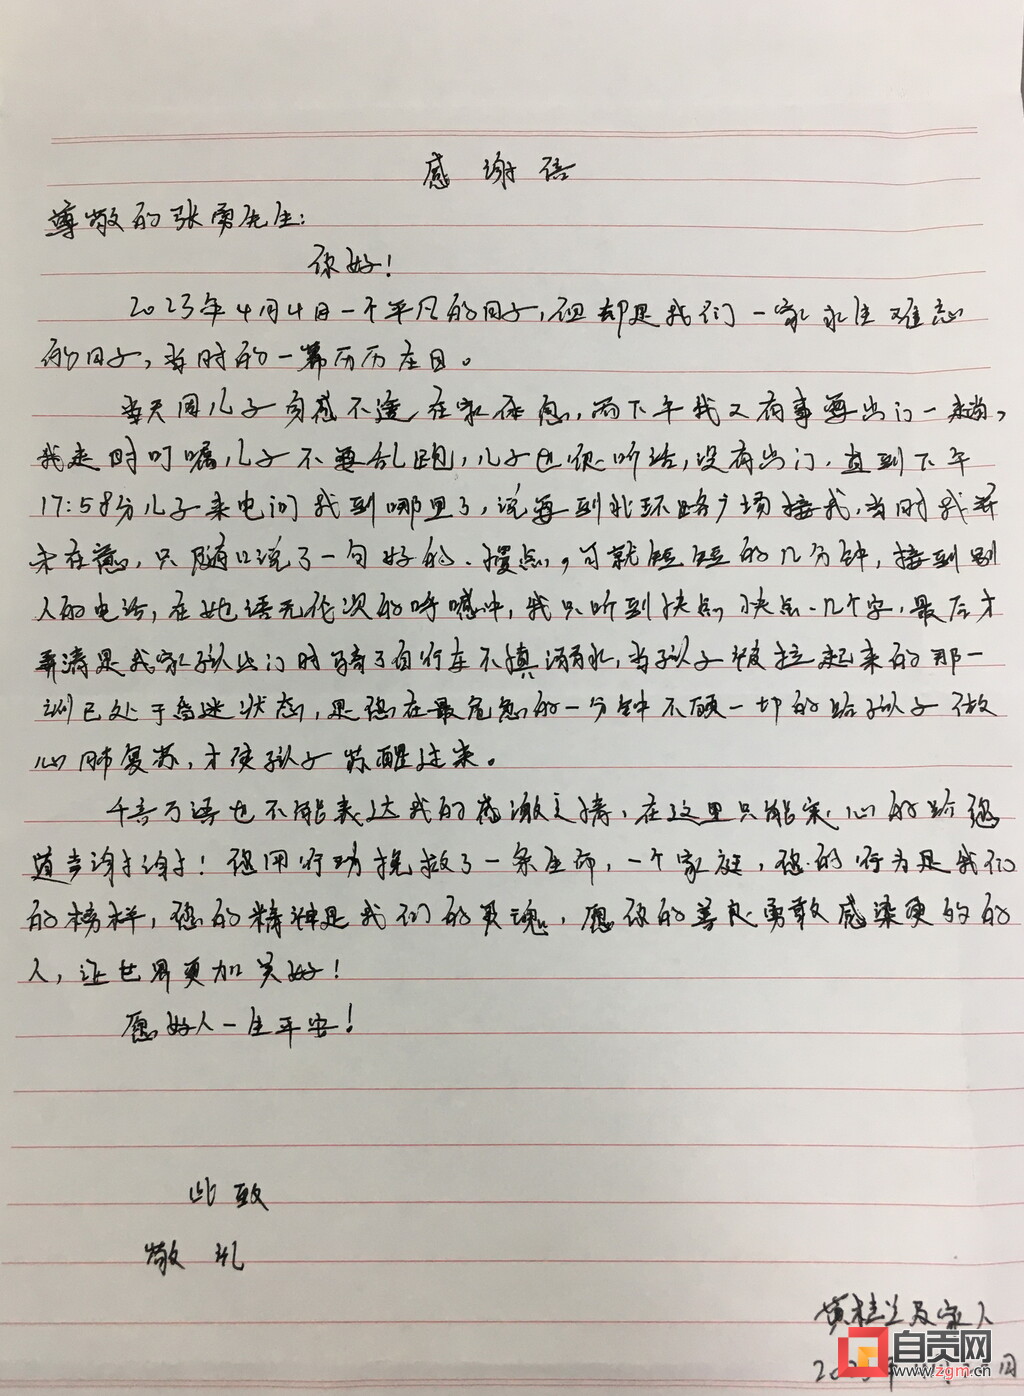 感谢信
尊敬的张勇先生：
你好！
2023年4月4日一个平凡的日子，但却是我们一家永生难忘
的日子，当时的一幕历历在目。
当天因儿子身感不适在家休息，而下午我又有事要出门一趟，
我走时叮嘱儿子不要乱跑，儿子也很听话，没有出门，直到下午
17:58分儿子来电问我到哪里了，说要到北环路广场接我，当时我并
未在意，只随口说了一句好的、慢点，可就短短的几分钟，接到别
人的电话，在她语无伦次的呼喊中，我只听到快点快点几个字，最后才
弄清是我家孩子出门时骑了自行车不慎溺水，当孩子被拉起来的那一
刻已处于昏迷状态，是您在最危急的一分钟不顾一切的给孩子做
心肺复苏，才使孩子苏醒过来。
千言万语也不能表达我的感激之情，在这里只能衷心的给您
道声谢谢！您用行动挽救了一条生命，一个家庭，您的行为是我们
的榜样，您的精神是我们的灵魂，愿你的善良勇敢感染更多的
人，让世界更加美好！
愿好人一生平安！
此致
敬礼
黄桂兰及家人
2023年
自贡网
www.zgm.cn